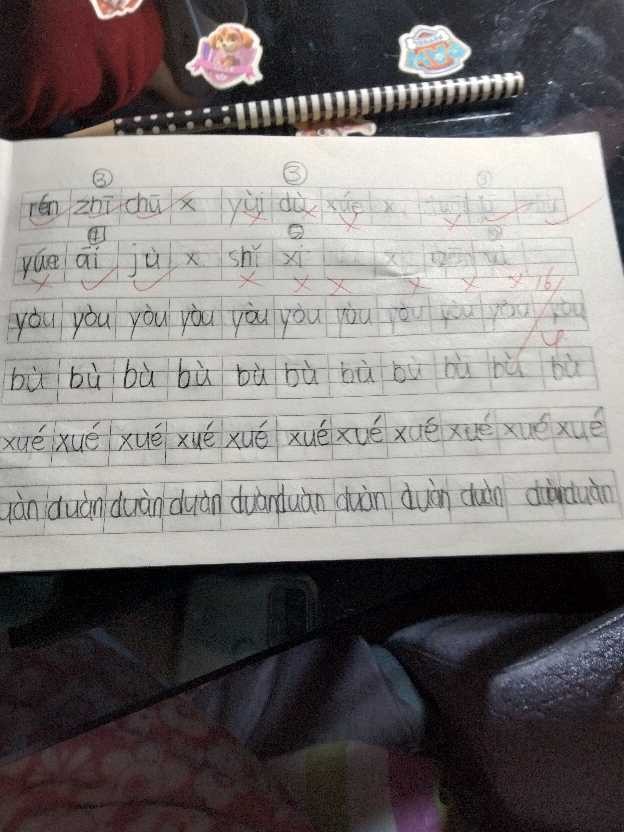 ③ ③ ③
rén zhī chū x yùi dù xúe x
④ ⑤
yúe āi jù x shǐ xì x
yòu yòu yòu yòu yòu yòu yòu yòu yòu yòu yòu
bù bù bù bù bù bù bù bù bù bù bù
xué xué xué xué xué xué xué xué xué xué xué
uàn duàn duàn duàn duàn duàn duàn duàn duàn duàn duàn